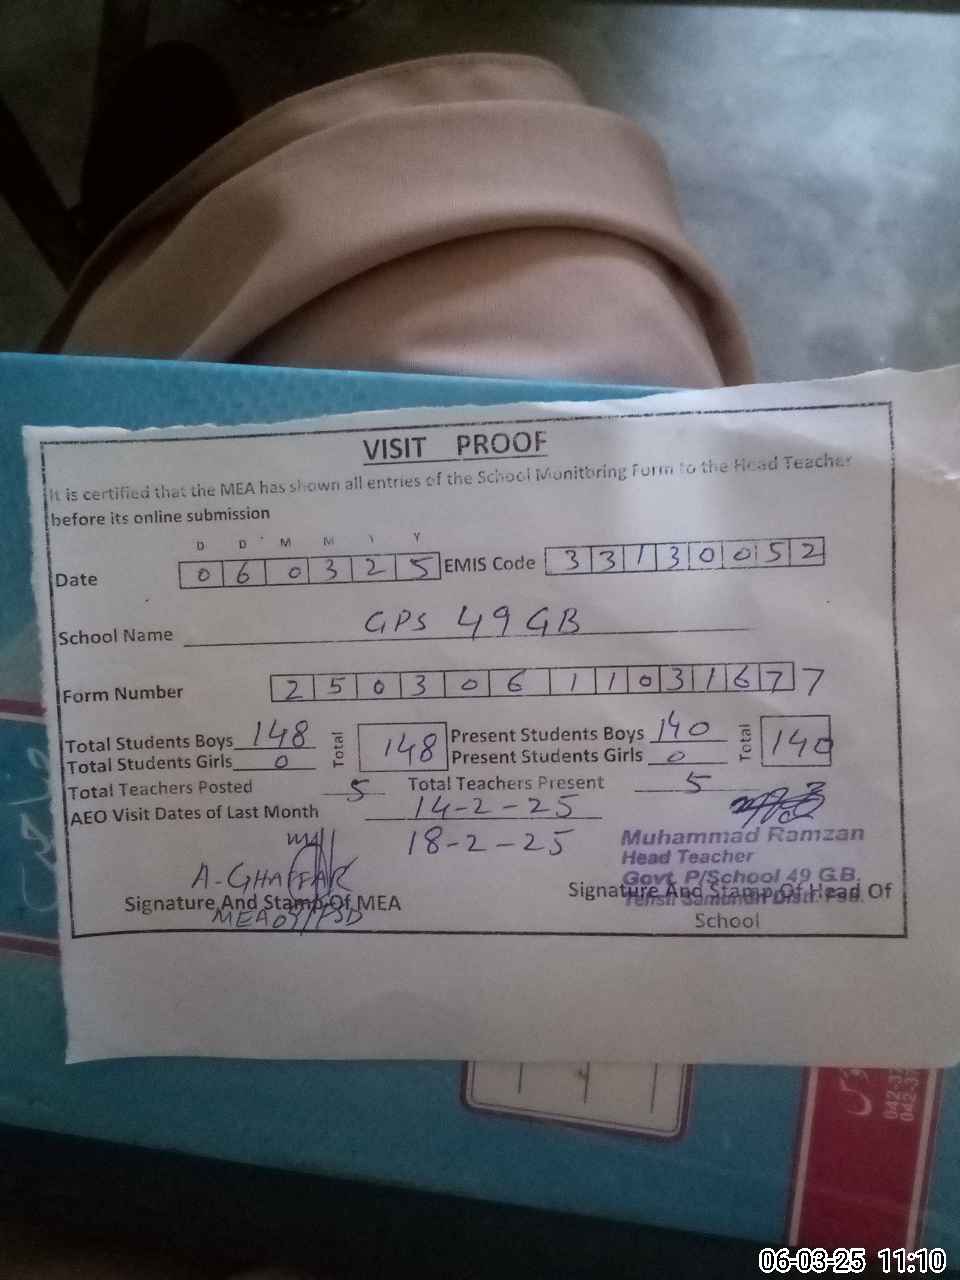 VISIT PROOF
It is certified that the MEA has shown all entries of the School Monitoring Form to the Head Teacher
before its online submission
D D M M Y Y
Date 0 6 0 3 2 5 EMIS Code 3 3 1 3 0 0 5 2
School Name GPS 49 GB
Form Number 2 5 0 3 0 6 1 1 0 3 1 6 7 7
Total Students Boys 148 Total 148 Present Students Boys 140 Total 140
Total Students Girls 0 Present Students Girls 0
Total Teachers Posted 5 Total Teachers Present 5
AEO Visit Dates of Last Month 14-2-25
18-2-25
Muhammad Ramzan
Head Teacher
Govt. P/School 49 G.B.
Tehsil Samundri Distt. Fsd.
A-GHAFFAR
Signature And Stamp Of MEA
Signature And Stamp Of Head Of
School
042-3
042-3
06-03-25 11:10